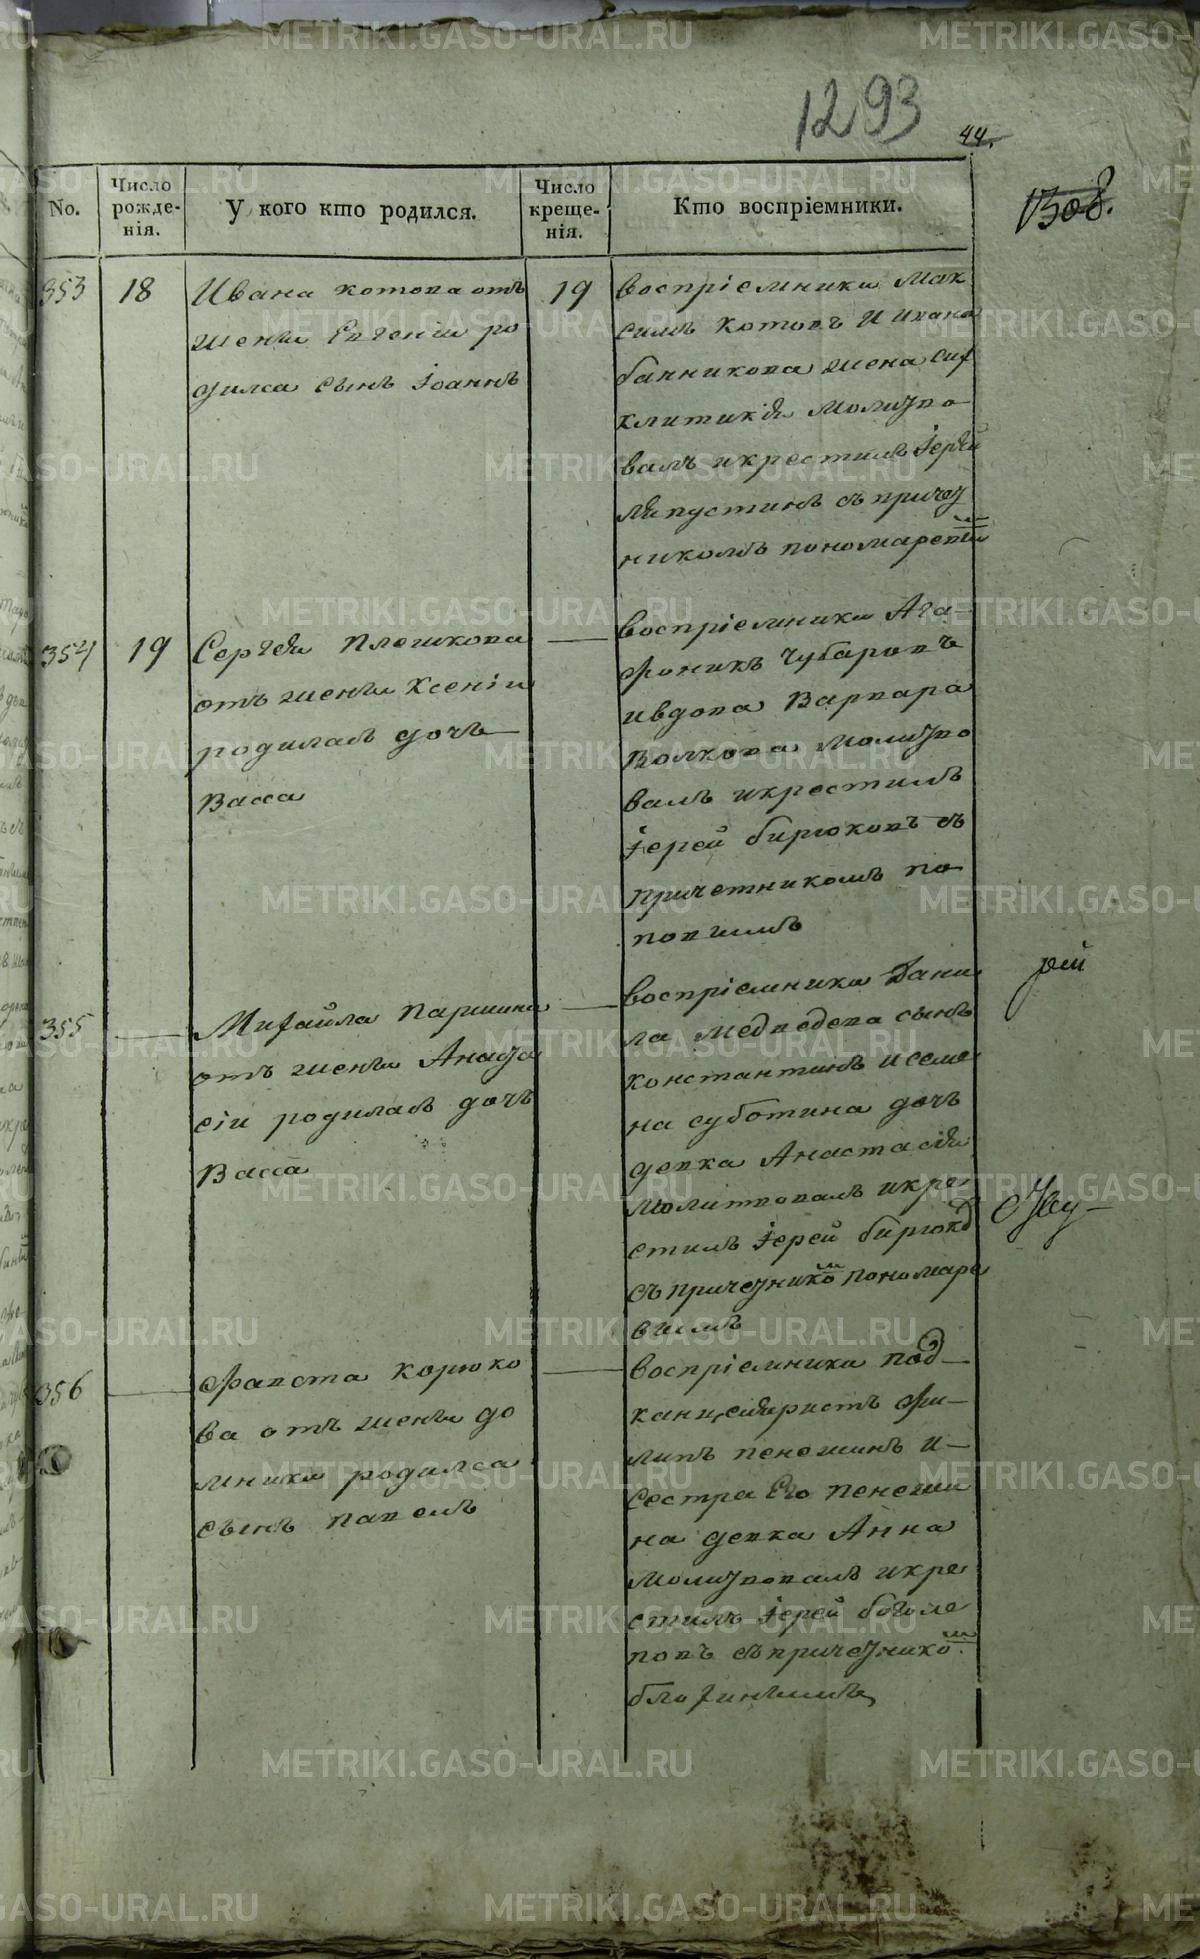 1293
44.
No.
Число рожде-нія.
У кого кто родился.
Число креще-нія.
Кто воспріемники.
353
18
Ивана котова отъ
жены Евгеніи ро
дился сынъ Іоаннъ
19
воспріемники Мак
симъ Котовъ и ивана
банникова жена син
клитикія молитво
валъ и крестилъ Іерей
ляпустинъ съ причет
никомъ пономаревым
354
19
Сергѣя Плешкова
отъ жены Ксеніи
родилась дочь
Васса
воспріемники Ага-
фоникъ Чубаровъ
и вдова Варвара
Волкова молитво
валъ и крестилъ
Іерей бирюковъ съ
причетникомъ по
повымъ
355
Михайла Паршина
отъ жены Анаста
сіи родилась дочь
Васса
воспріемники Дани
ла медведева сынъ
константинъ и семе
на суботина дочь
девка Анастасія
молитвовалъ и кре
стилъ Іерей бирюков
съ причетнико м пономаре
вымъ
356
Фавста Корюко
ва отъ жены до
мники родился
сынъ павелъ
воспріемники под-
канцеляристъ Фи-
липъ пенешинъ и-
сестра Его пенеши
на девка Анна
молитвовалъ и кре
стилъ Іерей боголе
повъ съ причетнико м
блохинымъ
рей
METRIKI.GASO-URAL.RU